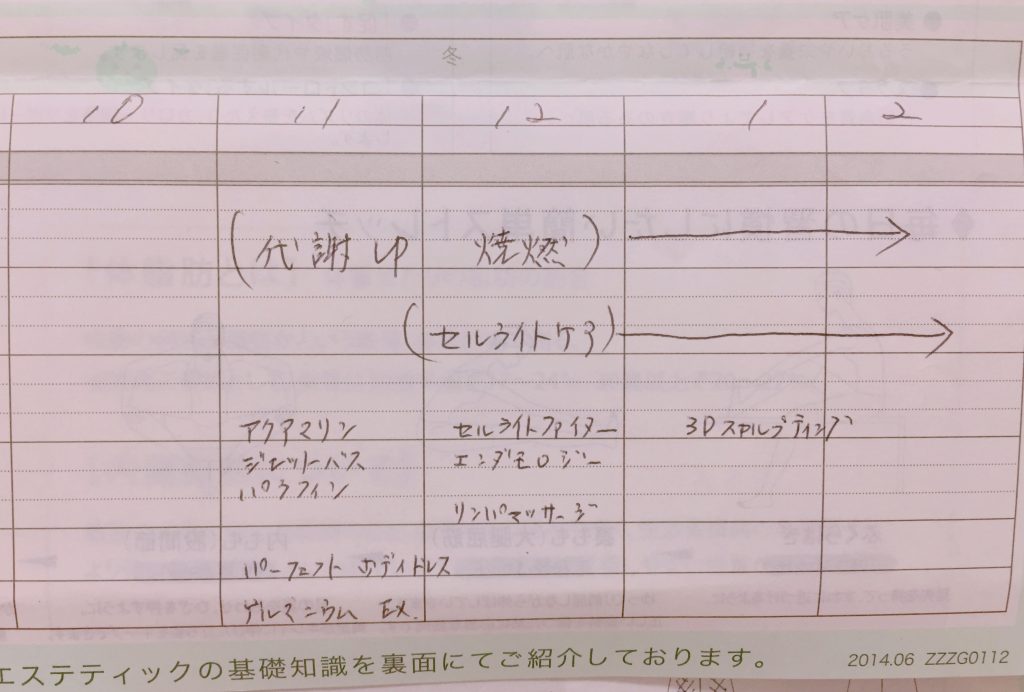 冬
10 11 12 1 2
(代謝up 焼燃)
(セルライトケア)
アクアマリン セルライトファイター 3Dスキルプティング
ジェットバス エンダモロジー
パラフィン
リンパマッサージ
パーフェクト ボディドレス
ゲルマニウム EX.
エステティックの基礎知識を裏面にてご紹介しております。 2014.06 ZZZG0112